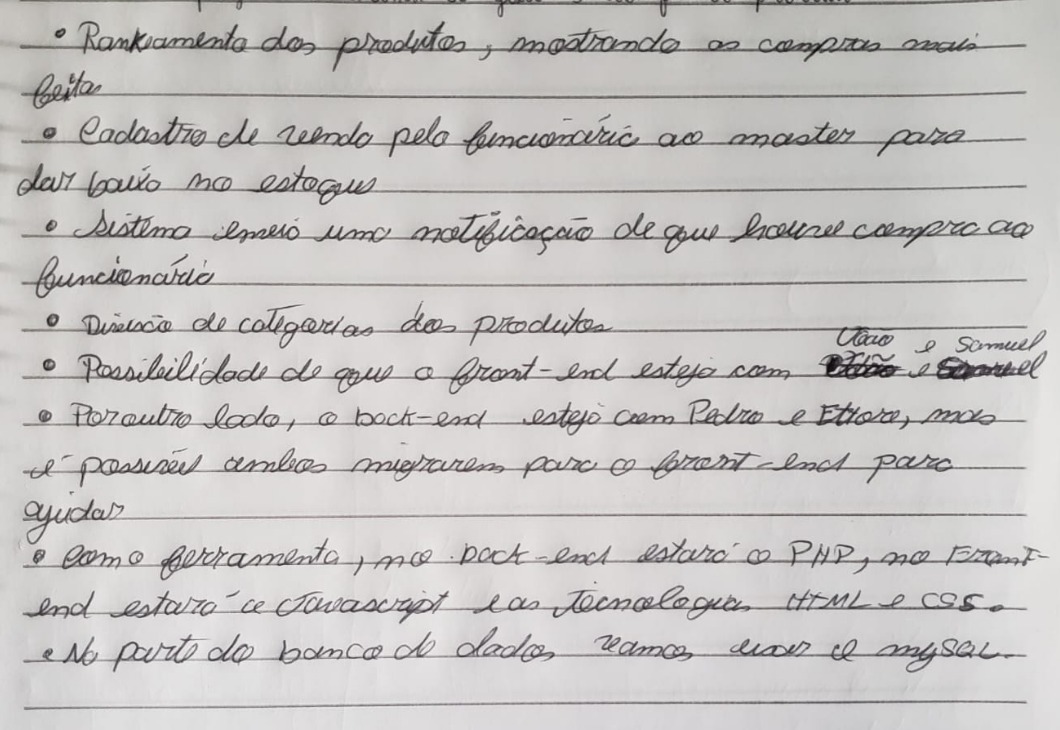 • Rankiamento dos produtos, mostrando as compras mais
feitas
• Cadastro de venda pelo funcionário ao master para
dar baixa no estoque
• Sistema envia uma notificação de que houve compra ao
funcionário
• Divisão de categorias dos produtos
João e Samuel
• Possibilidade de que o front-end esteja com e
• Por outro lado, o back-end esteja com Pedro e Ettore, mas
é possível ambos migrarem para o front-end para
ajudar
• Como ferramenta, no back-end estará o PHP, no Front-
end estará o Javascript e as Tecnologias HTML e CSS.
• Na parte do banco de dados vamos usar o mySQL.